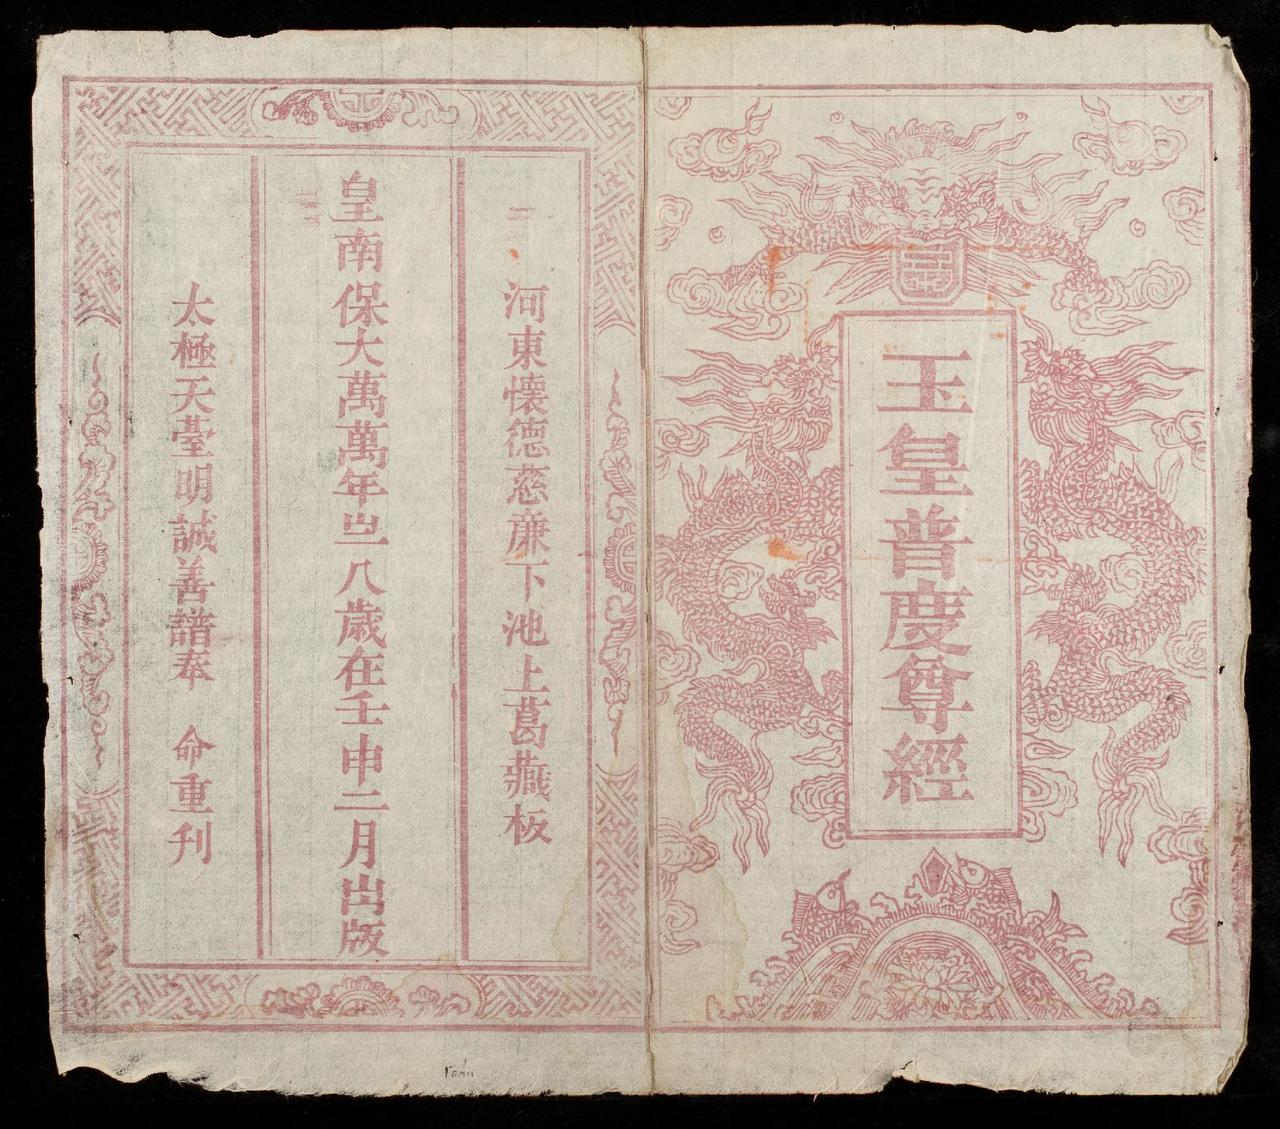 玉皇普度尊經
河東懐德慈廉下池上葛燕板
皇南保大萬萬年之八歳在壬申二月出版
太極天臺明誠善譜奉 命重刋